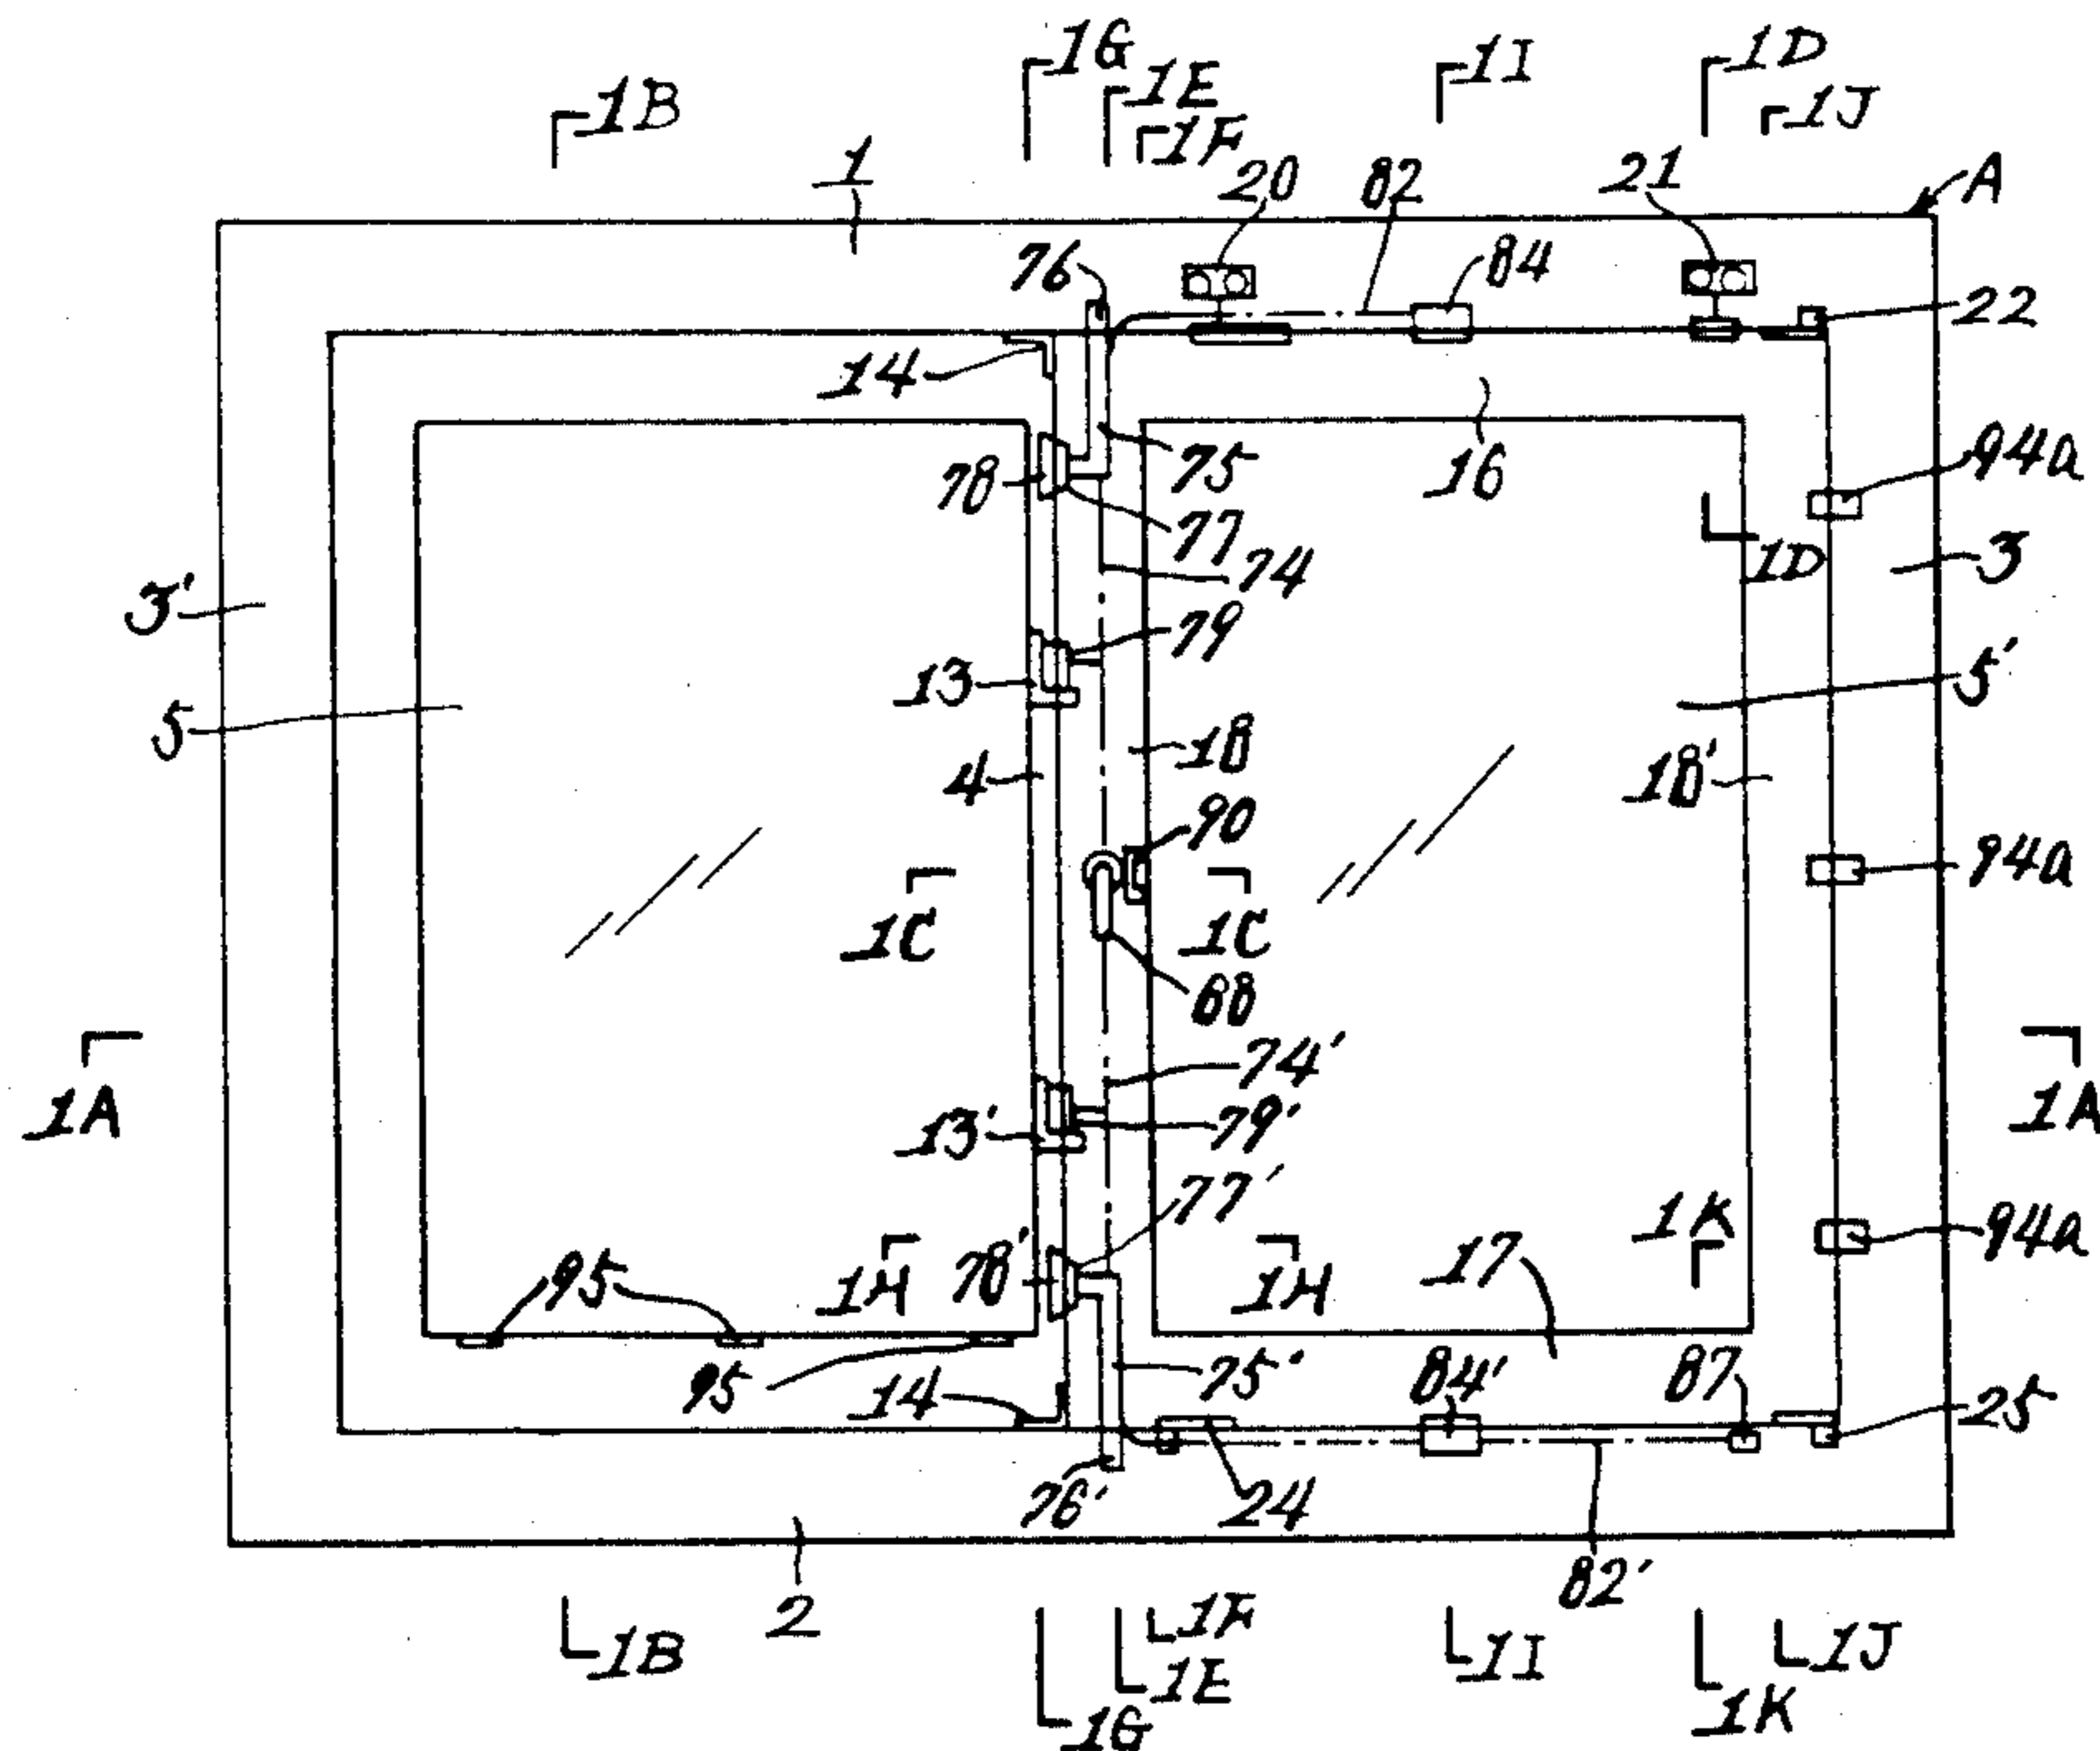 1G
1I
1D
1B
1E
1J
1F
1
20
82
21
A
76
84
22
14
78
75
16
94a
77
1D
3
3'
74
79
13
5'
5
18
4
18'
90
94a
1C
1C
68
74'
1A
1A
13'
79'
77'
1K
94a
95
1H
78'
1H
17
95
14
75'
84'
87
25
76'
24
82'
2
1B
1F
1I
1J
1E
1G
1K